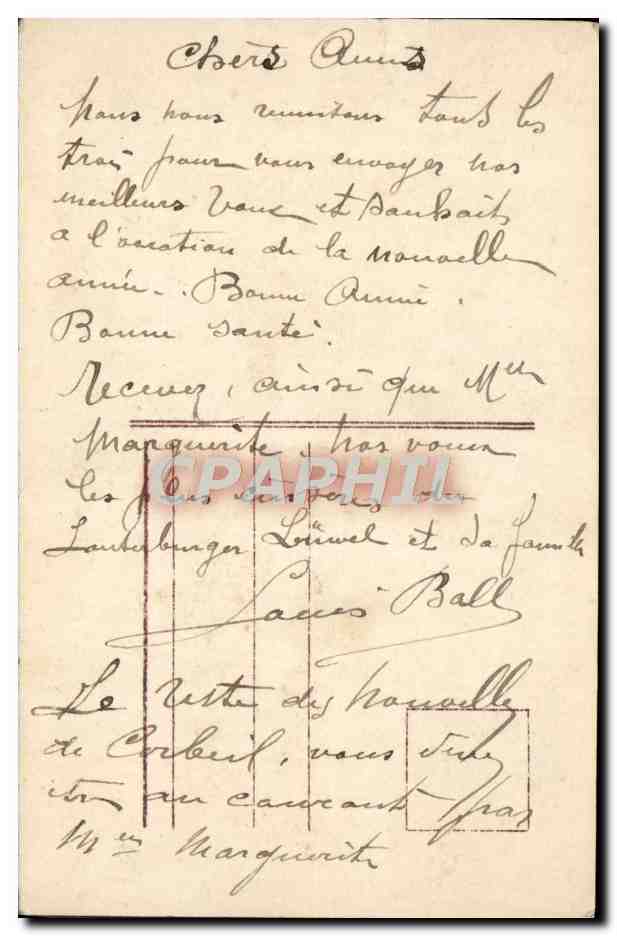 Chers Amis
Nous nous réunitons tous les
trois pour vous envoyer nos
meilleurs Voux et souhaits
a l'ocation de la nouvelle
année. Bonne Année.
Bonne santé.
Recevez, ainsi que Mlle
Marguerite, nos voeux
les plus sincères des
Lauterburger Lüwel et sa famille
Louis Ball
Le reste des nouvelles
de Corbeil, vous
être au courant par
Marguerite
CPAPHIL